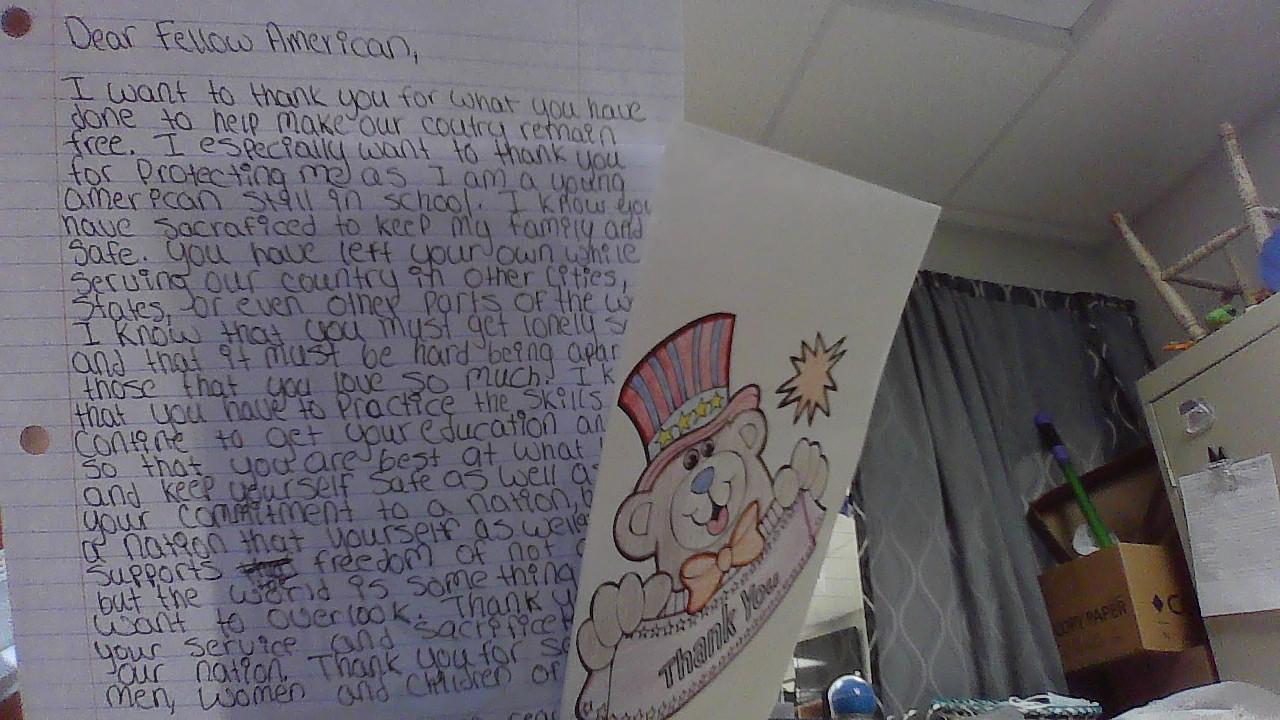 Dear Fellow American,
I want to thank you for what you have
done to help make our coutry remain
free. I especially want to thank you
for protecting me as I am a young
american still in school. I know you
have sacraficed to keep my family and
safe. You have left your own while
serving our country in other cities,
states, or even other parts of the
I know that you must get lonely
and that it must be hard being
those that you love so much. I
that you have to practice the skills
contine to get your education
so that you are best at what
and keep yourself safe as well as
your commitment to a nation,
a nation that yourself as well
supports freedom of not
but the world is something
want to overlook. Thank
your service and sacrifice
our nation. Thank you for
men, women and children of
Thank You
COPY PAPER